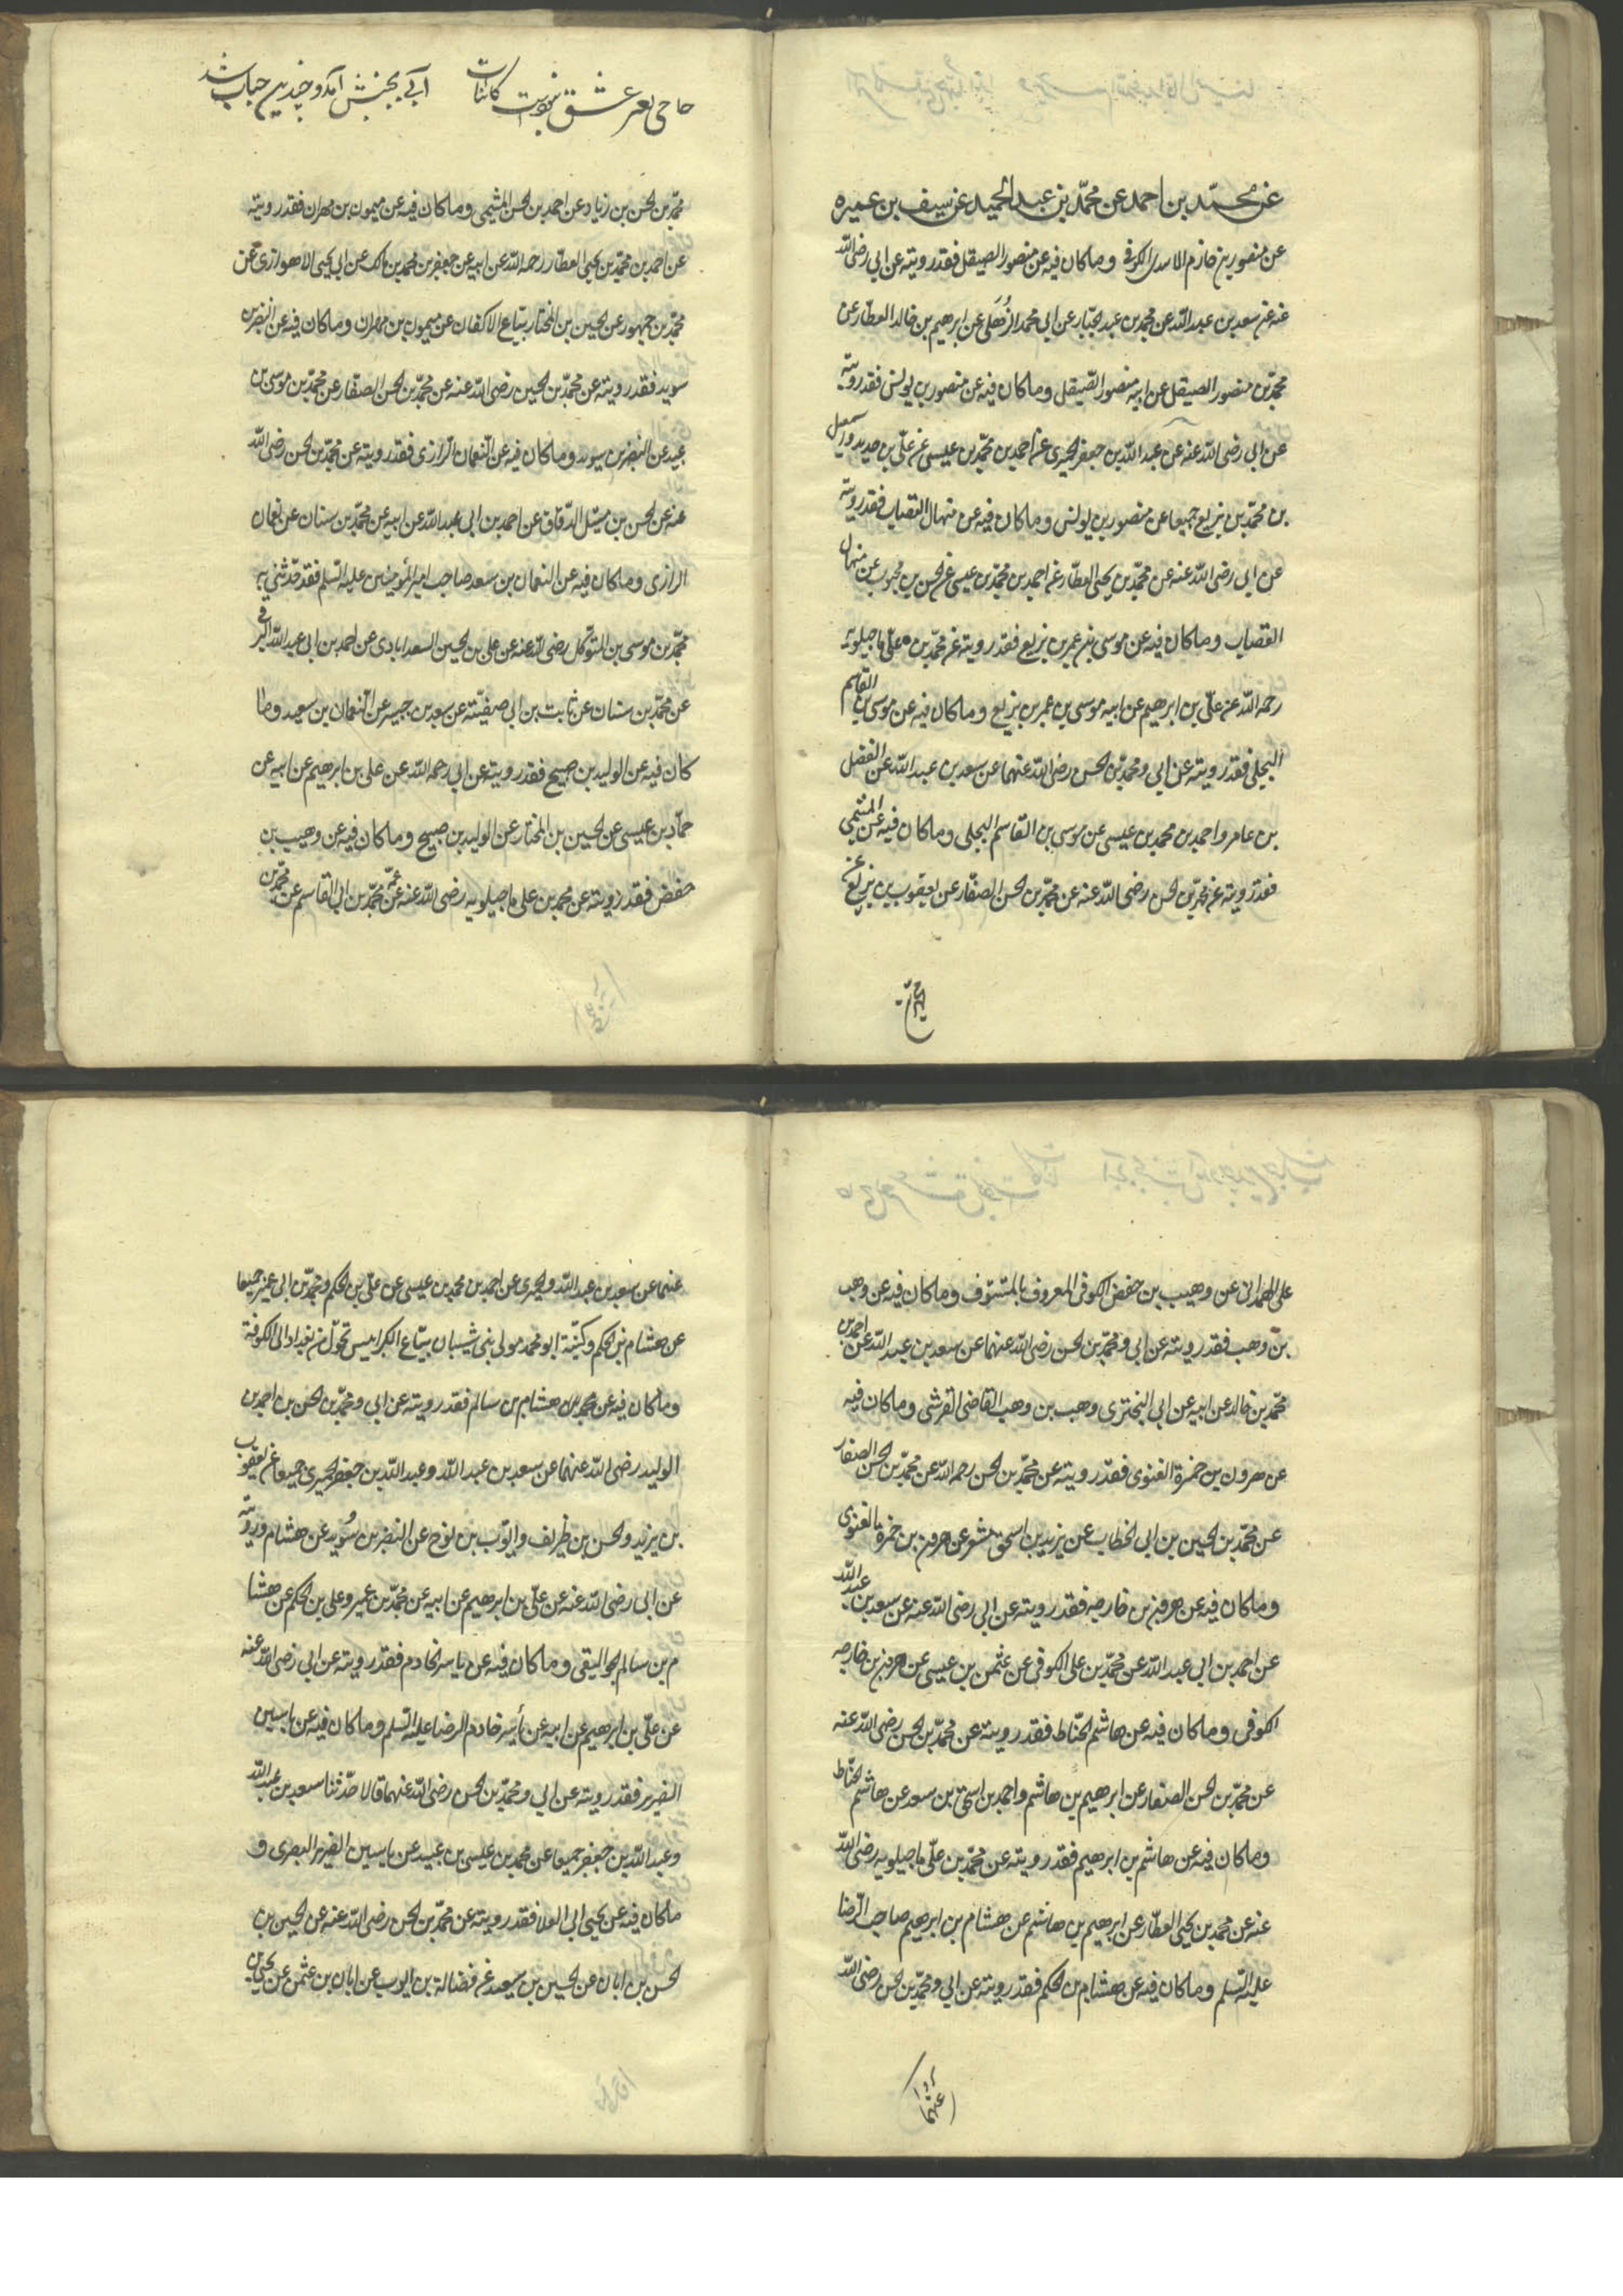 عن محمّد بن احمد عن محمّد بن عبد الحميد عن سيف بن عميره
عن منصور بن حازم الاسدى الكوفى وماكان فيه عن منصور الصيقل فقد رويته عن ابى رضى الله
عنه عن سعد بن عبد الله عن محمد بن عبد الجبّار عن ابى محمد الذُهلى عن ابرهيم بن خالد العطّار عن
محمّد بن منصور الصيقل عن ابيه منصور الصّيقل وماكان فيه عن منصور بن يونس فقد رويته
عن ابى رضى الله عنه عن عبد الله بن جعفر الحميرى عن احمد بن محمّد بن عيسى عن علىّ بن حديد و اسمعيل
بن محمّد بن بزيع جميعا عن منصور بن يونس وماكان فيه عن منهال القصاب فقد رويته
عن ابى رضى الله عنه عن محمّد بن يحيى العطّار عن احمد بن محمّد بن عيسى عن الحسن بن محبوب عن منهال
القصاب وماكان فيه عن موسى بن عمر بن بزيع فقد رويته عن محمّد بن علىّ ماجيلويه
رحمه الله عن علىّ بن ابرهيم عن ابيه موسى بن عمر بن بزيع وماكان فيه عن موسى بن القاسم
البجلى فقد رويته عن ابى ومحمّد بن الحسن رضى الله عنهما عن سعد بن عبد الله عن الفضل
بن عامر واحمد بن محمد بن عيسى عن موسى بن القاسم البجلى وماكان فيه عن الميثمى
فقد رويته عن محمّد بن الحسن رضى الله عنه عن محمّد بن الحسن الصفّار عن يعقوب بن يزيد عن
حاجى بعر عشق نبوت كائنات آبى بجنبش آمد و چندين حباب شد
محمّد بن الحسن بن زياد عن احمد بن الحسن الميثمى وماكان فيه عن ميمون بن مهران فقد رويته
عن احمد بن محمّد بن يحيى العطّار رحمه الله عن ابيه عن جعفر بن محمد بن مالك عن ابى يحيى الاهوازى عن
محمّد بن جمهور عن الحسين بن المختار بيّاع الاكفان عن ميمون بن مهران وماكان فيه عن النضر بن
سويد فقد رويته عن محمّد بن الحسن رضى الله عنه عن محمّد بن الحسن الصفّار عن محمّد بن موسى بن
عبيد عن النضر بن سويد وماكان فيه عن النعمان الرازى فقد رويته عن محمّد بن الحسن رضى الله
عنه عن الحسن بن متيل الدقاق عن احمد بن ابى عبد الله عن ابيه عن محمّد بن سنان عن نعمان
الرازى وماكان فيه عن النعمان بن سعد صاحب امير المؤمنين عليه السلم فقد حدثنى به
محمّد بن موسى بن المتوكّل رضى الله عنه عن على بن الحسين السعدابادى عن احمد بن ابى عبد الله البرقى
عن محمّد بن سنان عن ثابت بن ابى صفيّته عن سعد بن جبير عن النعمان بن سعيد وما
كان فيه عن الوليد بن صبيح فقد رويته عن ابى رحمه الله عن على بن ابرهيم عن ابيه عن
حمّاد بن عيسى عن الحسين بن المختار عن الوليد بن صبيح وماكان فيه عن وهيب بن
حفض فقد رويته عن محمد بن على ماجيلويه رضى الله عنه عن عمّه محمّد بن ابى القاسم عن محمّد بن
على الهمدانى عن وهيب بن حفض الكوفى المعروف بالمنتوف وماكان فيه عن وهب
بن وهب فقد رويته عن ابى ومحمّد بن الحسن رضى الله عنهما عن سعد بن عبد الله عن احمد بن
محمّد بن خالد عن ابيه عن ابى البخترى وهب بن وهب القاضى القرشى وماكان فيه
عن هرون بن حمزة الغنوى فقد رويته عن محمّد بن الحسن رحمه الله عن محمّد بن الحسن الصفار
عن محمّد بن الحسين بن ابى الخطاب عن يزيد بن اسحق شعر عن هرون بن حمزة الغنوى
وماكان فيه عن هرون بن خارجه فقد رويته عن ابى رضى الله عنه عن سعد بن عبد الله
عن احمد بن ابى عبد الله عن محمّد بن على الكوفى عن عثمن بن عيسى عن هرون بن خارجه
الكوفى وماكان فيه عن هاشم الحنّاط فقد رويته عن محمّد بن الحسن رضى الله عنه
عن محمّد بن الحسن الصفار عن ابرهيم بن هاشم واحمد بن اسحق بن سعد عن هاشم الحنّاط
وماكان فيه عن هاشم بن ابرهيم فقد رويته عن محمّد بن علىّ ماجيلويه رضى الله
عنه عن محمد بن يحيى العطّار عن ابرهيم بن هاشم عن هشام بن ابرهيم صاحب الرّضا
عليه السّلم وماكان فيه عن هشام بن الحكم فقد رويته عن ابى ومحمّد بن الحسن رضى الله
عنهما
عنهما عن سعد بن عبد الله والحميرى عن احمد بن محمد بن عيسى عن علىّ بن الحكم ومحمّد بن ابى عمير جميعا
عن هشام بن الحكم وكنيّته ابو محمد مولى بنى شيبان بيّاع الكرابيس تحوّل من بغداد الى الكوفة
وماكان فيه عن هشام بن سالم فقد رويته عن ابى ومحمّد بن الحسن بن احمد بن
الوليد رضى الله عنهما عن سعد بن عبد الله وعبد الله بن جعفر الحميرى جميعا عن يعقوب
بن يزيد والحسن بن ظريف وايّوب بن نوح عن النضر بن سُويد عن هشام ورويته
عن ابى رضى الله عنه عن علىّ بن ابرهيم عن ابيه عن محمّد بن عمير وعلى بن الحكم عن هشا
م بن سالم الجواليقى وماكان فيه عن ياسر الخادم فقد رويته عن ابى رضى الله عنه
عن علىّ بن ابرهيم عن ابيه عن ياسر خادم الرضا عليه السّلم وماكان فيه عن ياسين
الضرير فقد رويته عن ابى ومحمّد بن الحسن رضى الله عنهما قالا حدّثنا سعد بن عبد الله
وعبد الله بن جعفر جميعا عن محمد بن عيسى بن عبيد عن ياسين الضرير البصرى و
ماكان فيه عن يحيى ابى العلا فقد رويته عن محمّد بن الحسن رضى الله عنه عن الحسين بن
الحسن بن ابان عن الحسين بن سعيد عن فضالة بن ايوب عن ابان بن عثمن عن يحيى بن